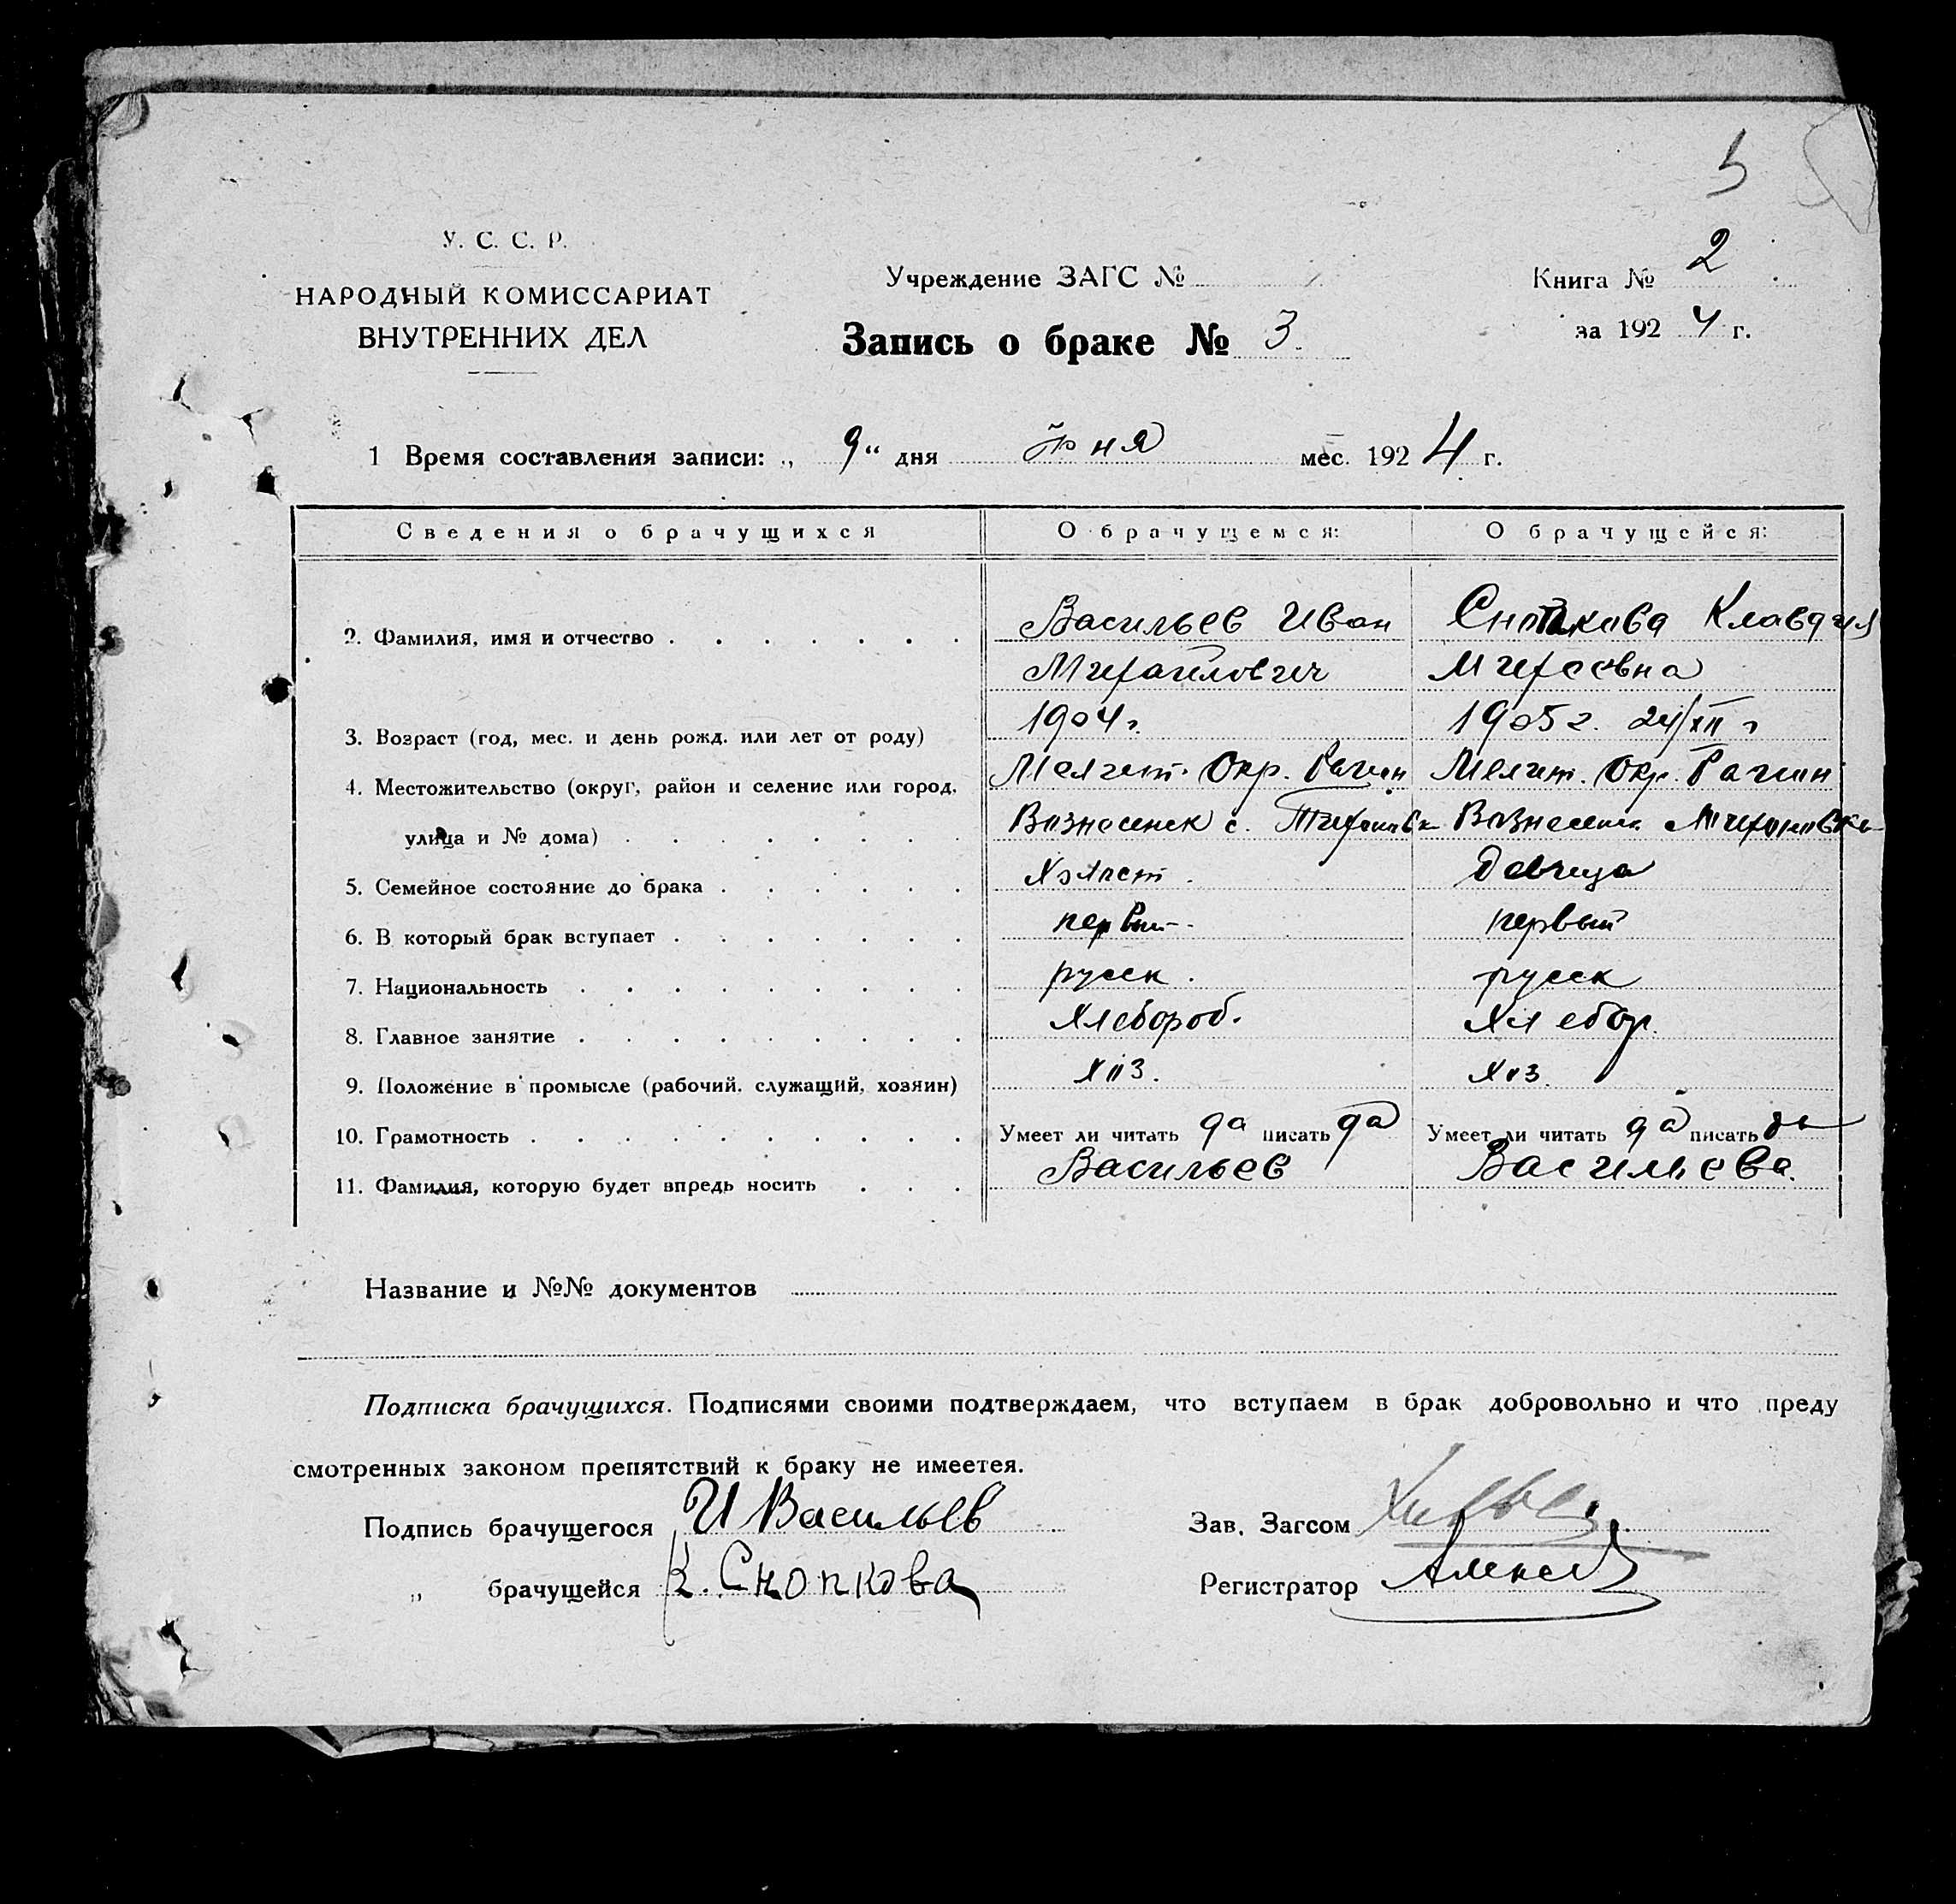 5
У. С. С. Р.
НАРОДНЫЙ КОМИССАРИАТ
ВНУТРЕННИХ ДЕЛ
Учреждение ЗАГС №
Запись о браке № 3
Книга № 2
за 1924 г.
1 Время составления записи: „ 9" дня мес. 1924 г.
Сведения о брачущихся О брачущемся: О брачущейся:
2. Фамилия, имя и отчество Васильев Иван Снопкова Клавдия
Михайлович Михеевна
3. Возраст (год, мес. и день рожд. или лет от роду) 1904 г. 1905 г. 24/XII г
4. Местожительство (округ, район и селение или город, Мелит. Окр. Мелит. Окр.
улица и № дома) Вознесенск с. Вознесенск
5. Семейное состояние до брака Холост. Девица
6. В который брак вступает первый первый
7. Национальность русск. русск
8. Главное занятие Хлебороб. Хлебор.
9. Положение в промысле (рабочий, служащий, хозяин) хоз. хоз.
10. Грамотность Умеет ли читать да писать да Умеет ли читать да писать да
11. Фамилия, которую будет впредь носить Васильев Васильева.
Название и №№ документов
Подписка брачущихся. Подписями своими подтверждаем, что вступаем в брак добровольно и что преду
смотренных законом препятствий к браку не имеетея.
Подпись брачущегося И Васильев Зав. Загсом
„ брачущейся К. Снопкова Регистратор